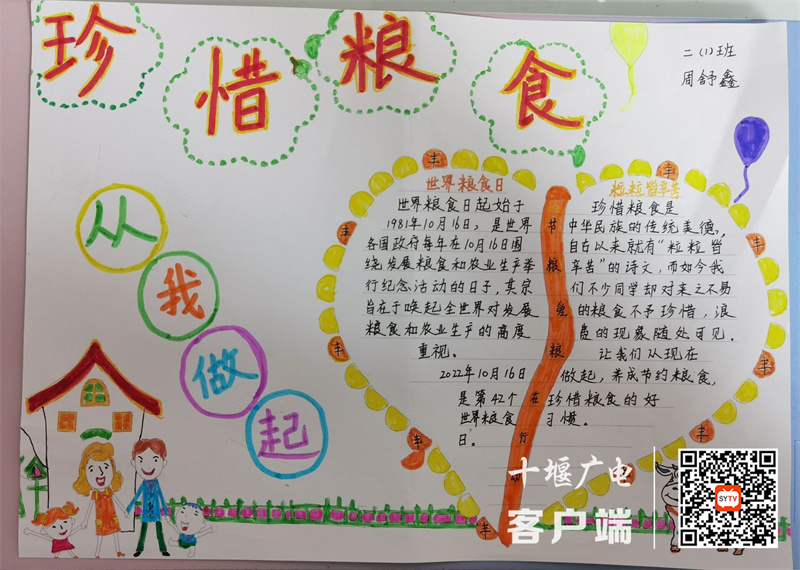 珍惜粮食
二(1)班
周舒鑫
从我做起
世界粮食日
世界粮食日起始于
1981年10月16日，是世界
各国政府每年在10月16日围
绕发展粮食和农业生产举
行纪念活动的日子，其宗
旨在于唤起全世界对发展
粮食和农业生产的高度
重视。
2022年10月16日
是第42个
世界粮食
日。
节粮爱粮在行
粒粒皆辛苦
珍惜粮食是
中华民族的传统美德，
自古以来就有“粒粒皆
辛苦”的诗文，而如今我
们不少同学却对来之不易
的粮食不予珍惜，浪
费的现象随处可见。
让我们从现在
做起，养成节约粮食，
珍惜粮食的好
习惯。
丰
丰
丰
丰
丰
丰
丰
丰
丰
十堰广电
客户端
SYTV